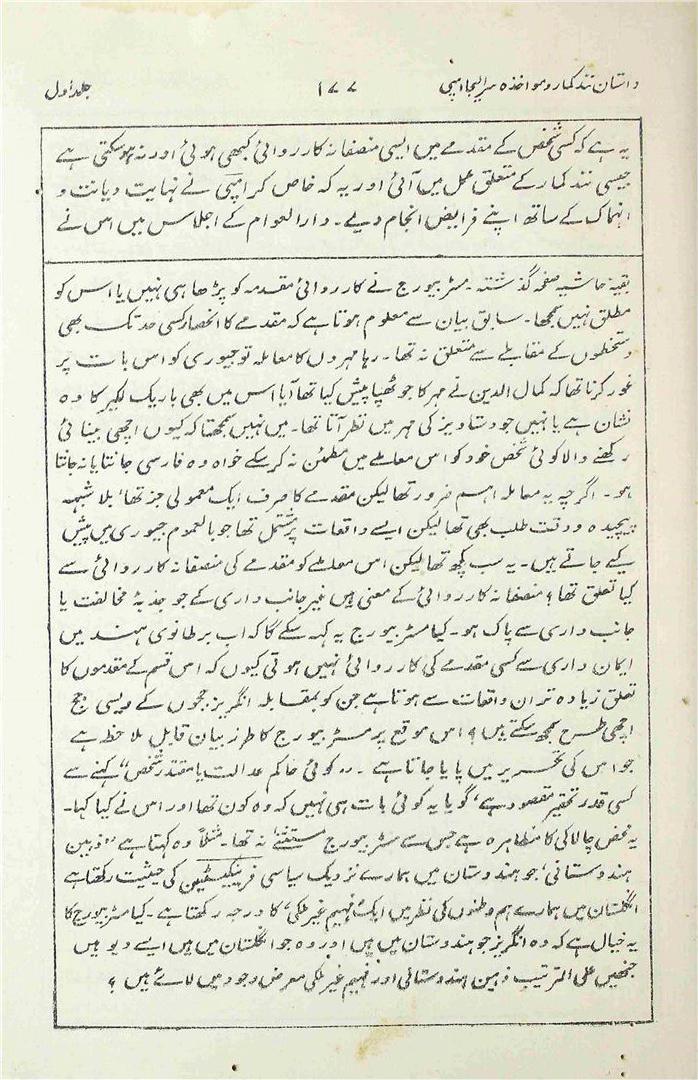 داستان نند کمار و مواخذہ سر ایلیجا امپی ۱۷۷ جلد اول
یہ ہے کہ کسی شخص کے مقدمے میں ایسی منصفانہ کارروائی کبھی ہوئی اور نہ ہو سکتی ہے
جیسی نند کمار کے متعلق عمل میں آئی اور یہ کہ خاص کر امپی نے نہایت دیانت و
انہماک کے ساتھ اپنے فرایض انجام دیے۔ دارالعوام کے اجلاس میں اس نے
بقیۂ حاشیہ صفحۂ گذشتہ۔ مسٹر بیورج نے کارروائی مقدمہ کو پڑھا ہی نہیں یا اس کو
مطلق نہیں سمجھا۔ سابق بیان سے معلوم ہوتا ہے کہ مقدمے کا انحصار کسی حد تک بھی
دستخطوں کے مقابلے سے متعلق نہ تھا۔ رہا مہروں کا معاملہ تو جیوری کو اس بات پر
غور کرنا تھا کہ کمال الدین نے مہر کا جو ٹھپا پیش کیا تھا آیا اس میں بھی باریک لکیر کا وہ
نشان ہے یا نہیں جو دستاویز کی مہر میں نظر آتا تھا۔ میں نہیں سمجھتا کہ کیوں اچھی بینائی
رکھنے والا کوئی شخص خود کو اس معاملے میں مطمئن نہ کر سکے خواہ وہ فارسی جانتا یا نہ جانتا
ہو۔ اگرچہ یہ معاملہ اہم ضرور تھا لیکن مقدمے کا صرف ایک معمولی جز تھا، بلا شبہہ
پیچیدہ و دقت طلب بھی تھا لیکن ایسے واقعات پر مشتمل تھا جو بالعموم جیوری میں پیش
کیے جاتے ہیں۔ یہ سب کچھ تھا لیکن اس معاملے کو مقدمے کی منصفانہ کارروائی سے
کیا تعلق تھا؟ منصفانہ کارروائی کے معنی ہیں غیر جانب داری کے جو جذبۂ مخالفت یا
جانب داری سے پاک ہو۔ کیا مسٹر بیورج یہ کہہ سکے گا کہ اب برطانوی ہند میں
ایمان داری سے کسی مقدمے کی کارروائی نہیں ہوتی کیوں کہ اس قسم کے مقدموں کا
تعلق زیادہ تر ان واقعات سے ہوتا ہے جن کو بمقابلہ انگریز ججوں کے دیسی جج
اچھی طرح سمجھ سکتے ہیں؟ اس موقع پر مسٹر بیورج کا طرز بیان قابل ملاحظہ ہے
جو اس کی تحریر میں پایا جاتا ہے۔ ”کوئی حاکم عدالت یا مقتدر شخص“ کہنے سے
کسی قدر تحقیر مقصود ہے، گویا یہ کوئی بات ہی نہیں کہ وہ کون تھا اور اس نے کیا کہا۔
یہ محض چالاکی کا مظاہرہ ہے جس سے مسٹر بیورج مستثنےٰ نہ تھا۔ مثلاً وہ کہتا ہے ”ذہین
ہندوستانی، جو ہندوستان میں ہمارے نزدیک سیاسی کی حیثیت رکھتا ہے
انگلستان میں ہمارے ہم وطنوں کی نظر میں ایک ’فہیم غیر ملکی‘ کا درجہ رکھتا ہے۔ کیا مسٹر بیورج کا
یہ خیال ہے کہ وہ انگریز جو ہندوستان میں ہیں اور وہ جو انگلستان میں ہیں ایسے دیو ہیں
جنھیں علی الترتیب ذہین ہندوستانی اور فہیم غیر ملکی معرض وجود میں لائے ہیں؟